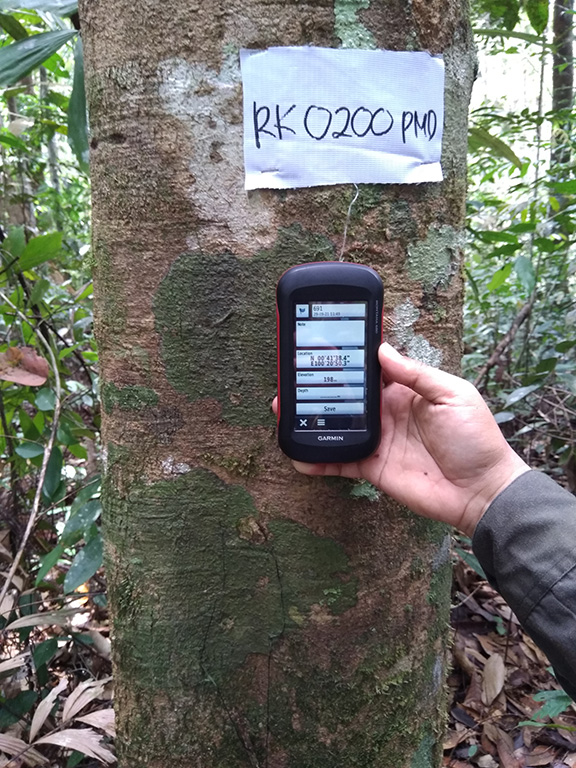 RK 0200 PMD
691
Note
Location
N 00°41'38.4"
E100°20'50.3"
Elevation
198 m
Depth
Save
GARMIN